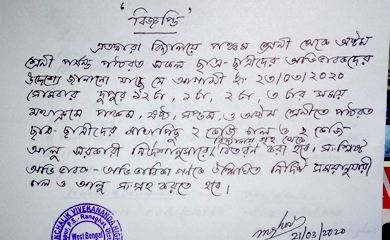 "বিজ্ঞপ্তি"
এতদ্বারা বিদ্যালয়ে পঞ্চম শ্রেণী থেকে অষ্টম
শ্রেণী পর্যন্ত পাঠরত সকল ছাত্র-ছাত্রীদের অভিভাবকদের
উদ্দেশ্যে জানানো যাচ্ছে যে আগামী ইং ২৩/০৩/২০২০
সোমবার দুপুর ১২টা, ১টা, ২টা, ৩টার সময়
যথাক্রমে পঞ্চম, ষষ্ঠ, সপ্তম, ও অষ্টম শ্রেণীতে পাঠরত
ছাত্র-ছাত্রীদের মাথাপিছু ২ কেজি চাল ও ২ কেজি
আলু সরকারী নির্দেশানুসারে বিদ্যালয় গৃহ থেকে বিতরন করা হবে। সংশ্লিষ্ট
অভিভাবক-অভিভাবিকাগণকে উল্লিখিত নির্দিষ্ট সময়ানুযায়ী
চাল ও আলু সংগ্রহ করতে হবে।
ANCHALIK VIVEKANANDA HIGH
West Bengal
21/03/2020